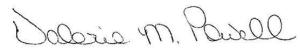 Valerie M. Powell